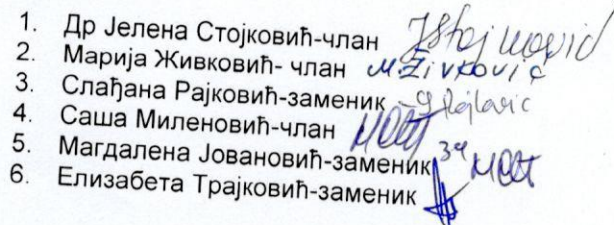 1. Др Јелена Стојковић-члан
2. Марија Живковић- члан M.Živković
3. Слађана Рајковић-заменик
4. Саша Миленовић-члан
5. Магдалена Јовановић-заменик
6. Елизабета Трајковић-заменик